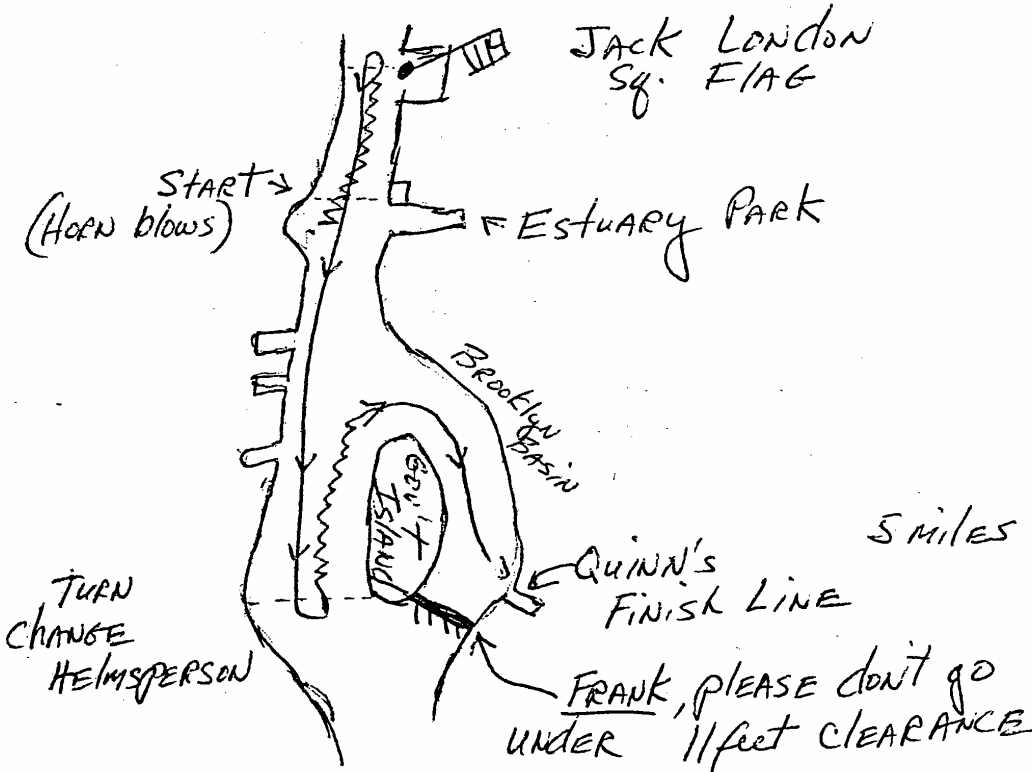 JACK LONDON
Sq. FLAG
START
(HORN blows)
ESTUARY PARK
BROOKLYN
BASIN
GOV'T
ISLAND
5 MILES
QUINN'S
FINISH LINE
TURN
CHANGE
HELMSPERSON
FRANK, PLEASE don't go
UNDER 11 feet CLEARANCE